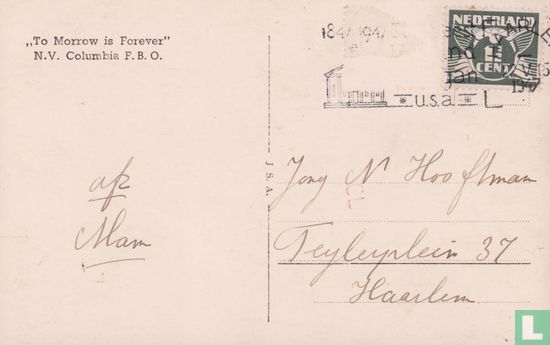 „To Morrow is Forever"
N.V. Columbia F.B.O.
1847 1947
NEDERLAND
1½
CENT
jan
1947
u.s.a
L
J. S. A.
afz
Mam
Jong N Hooftman
Teylerplein 37
Haarlem
catawiki